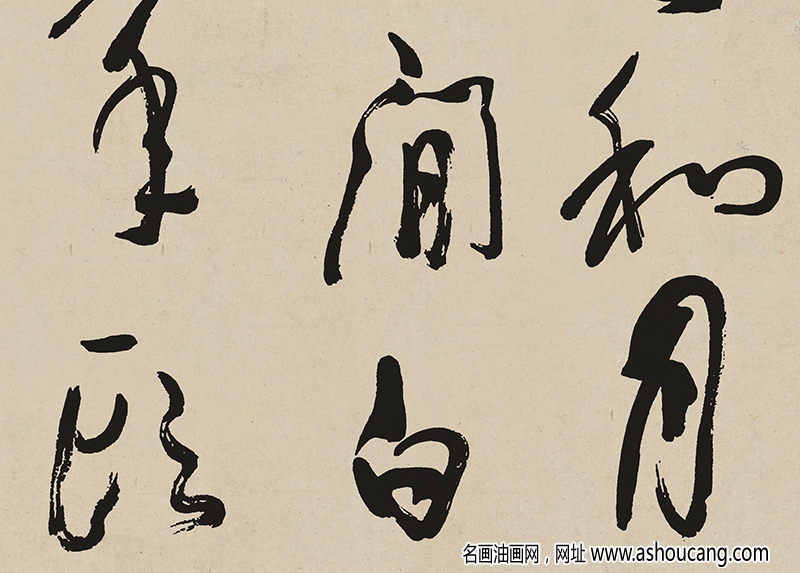 和月
間白
頭
名画油画网，网址 www.ashoucang.com